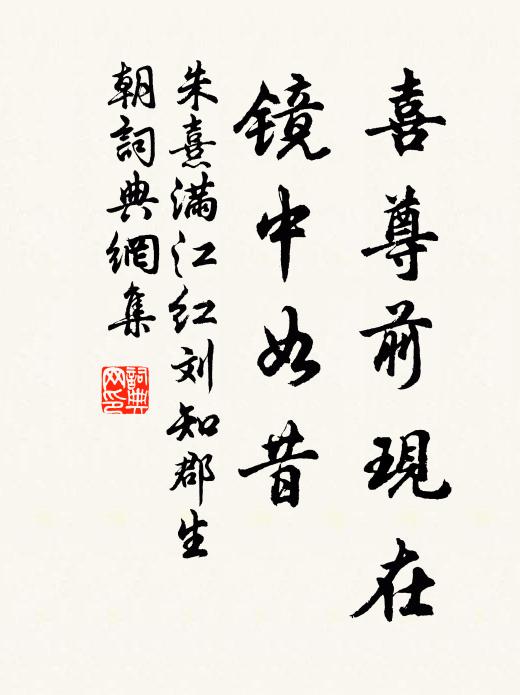 喜尊前現在
镜中如昔
朱熹满江红刘知郡生
朝詞典網集
詞典网印